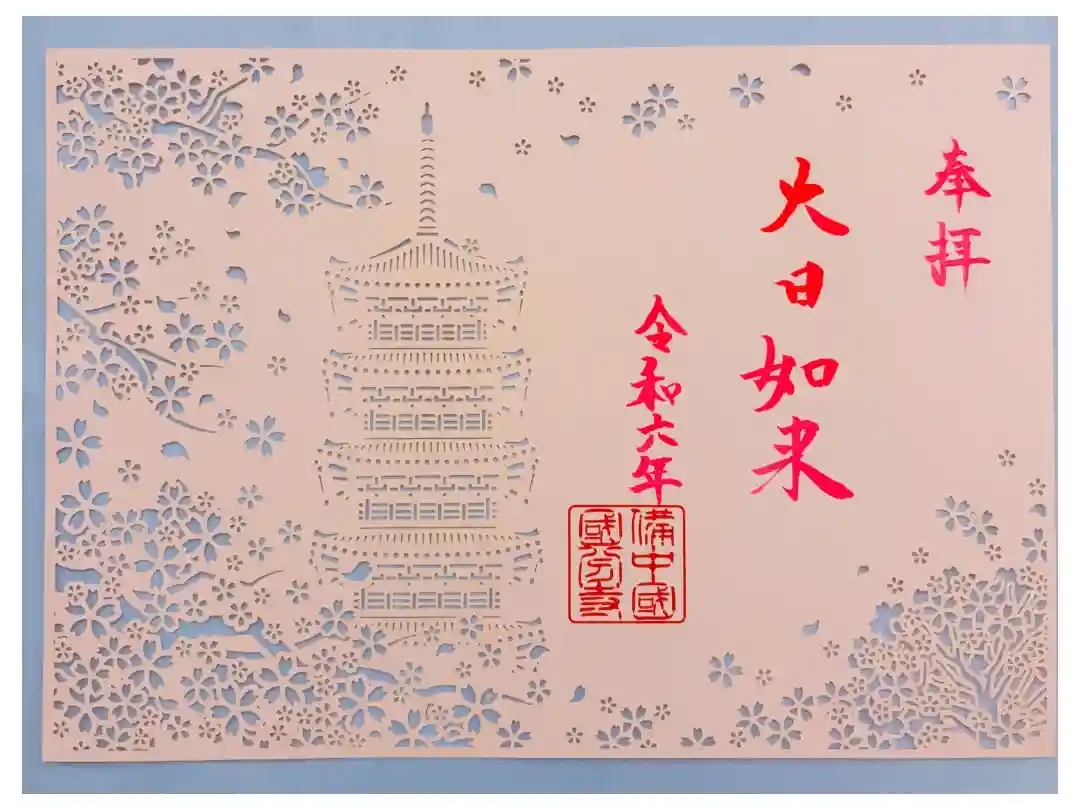 奉拝
大日如来
令和六年
備中國
國分寺